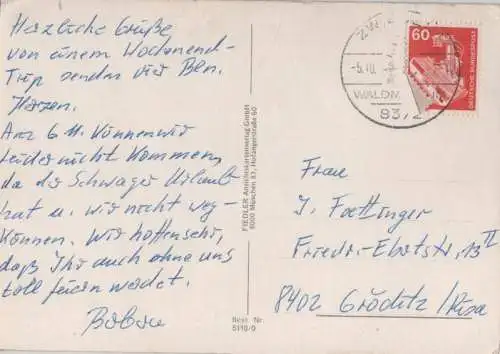 Herzliche Grüße
von einem Wochenend-
Trip senden wir Ben.
Herzen.
Am 6.11. können wir
leider nicht kommen,
da der Schwager Urlaub
hat u. wir nicht weg-
können. Wir hoffen sehr,
daß Ihr auch ohne uns
toll feiern werdet.
FIEDLER Ansichtskartenverlag GmbH
8000 München 83, Hofangerstraße 60
Best. Nr.
60
DEUTSCHE BUNDESPOST
-5.10.
WALDM
Frau
J. Foettinger
Friedr.-Ebertstr. 13 II
8402 Gröditz / Riesa